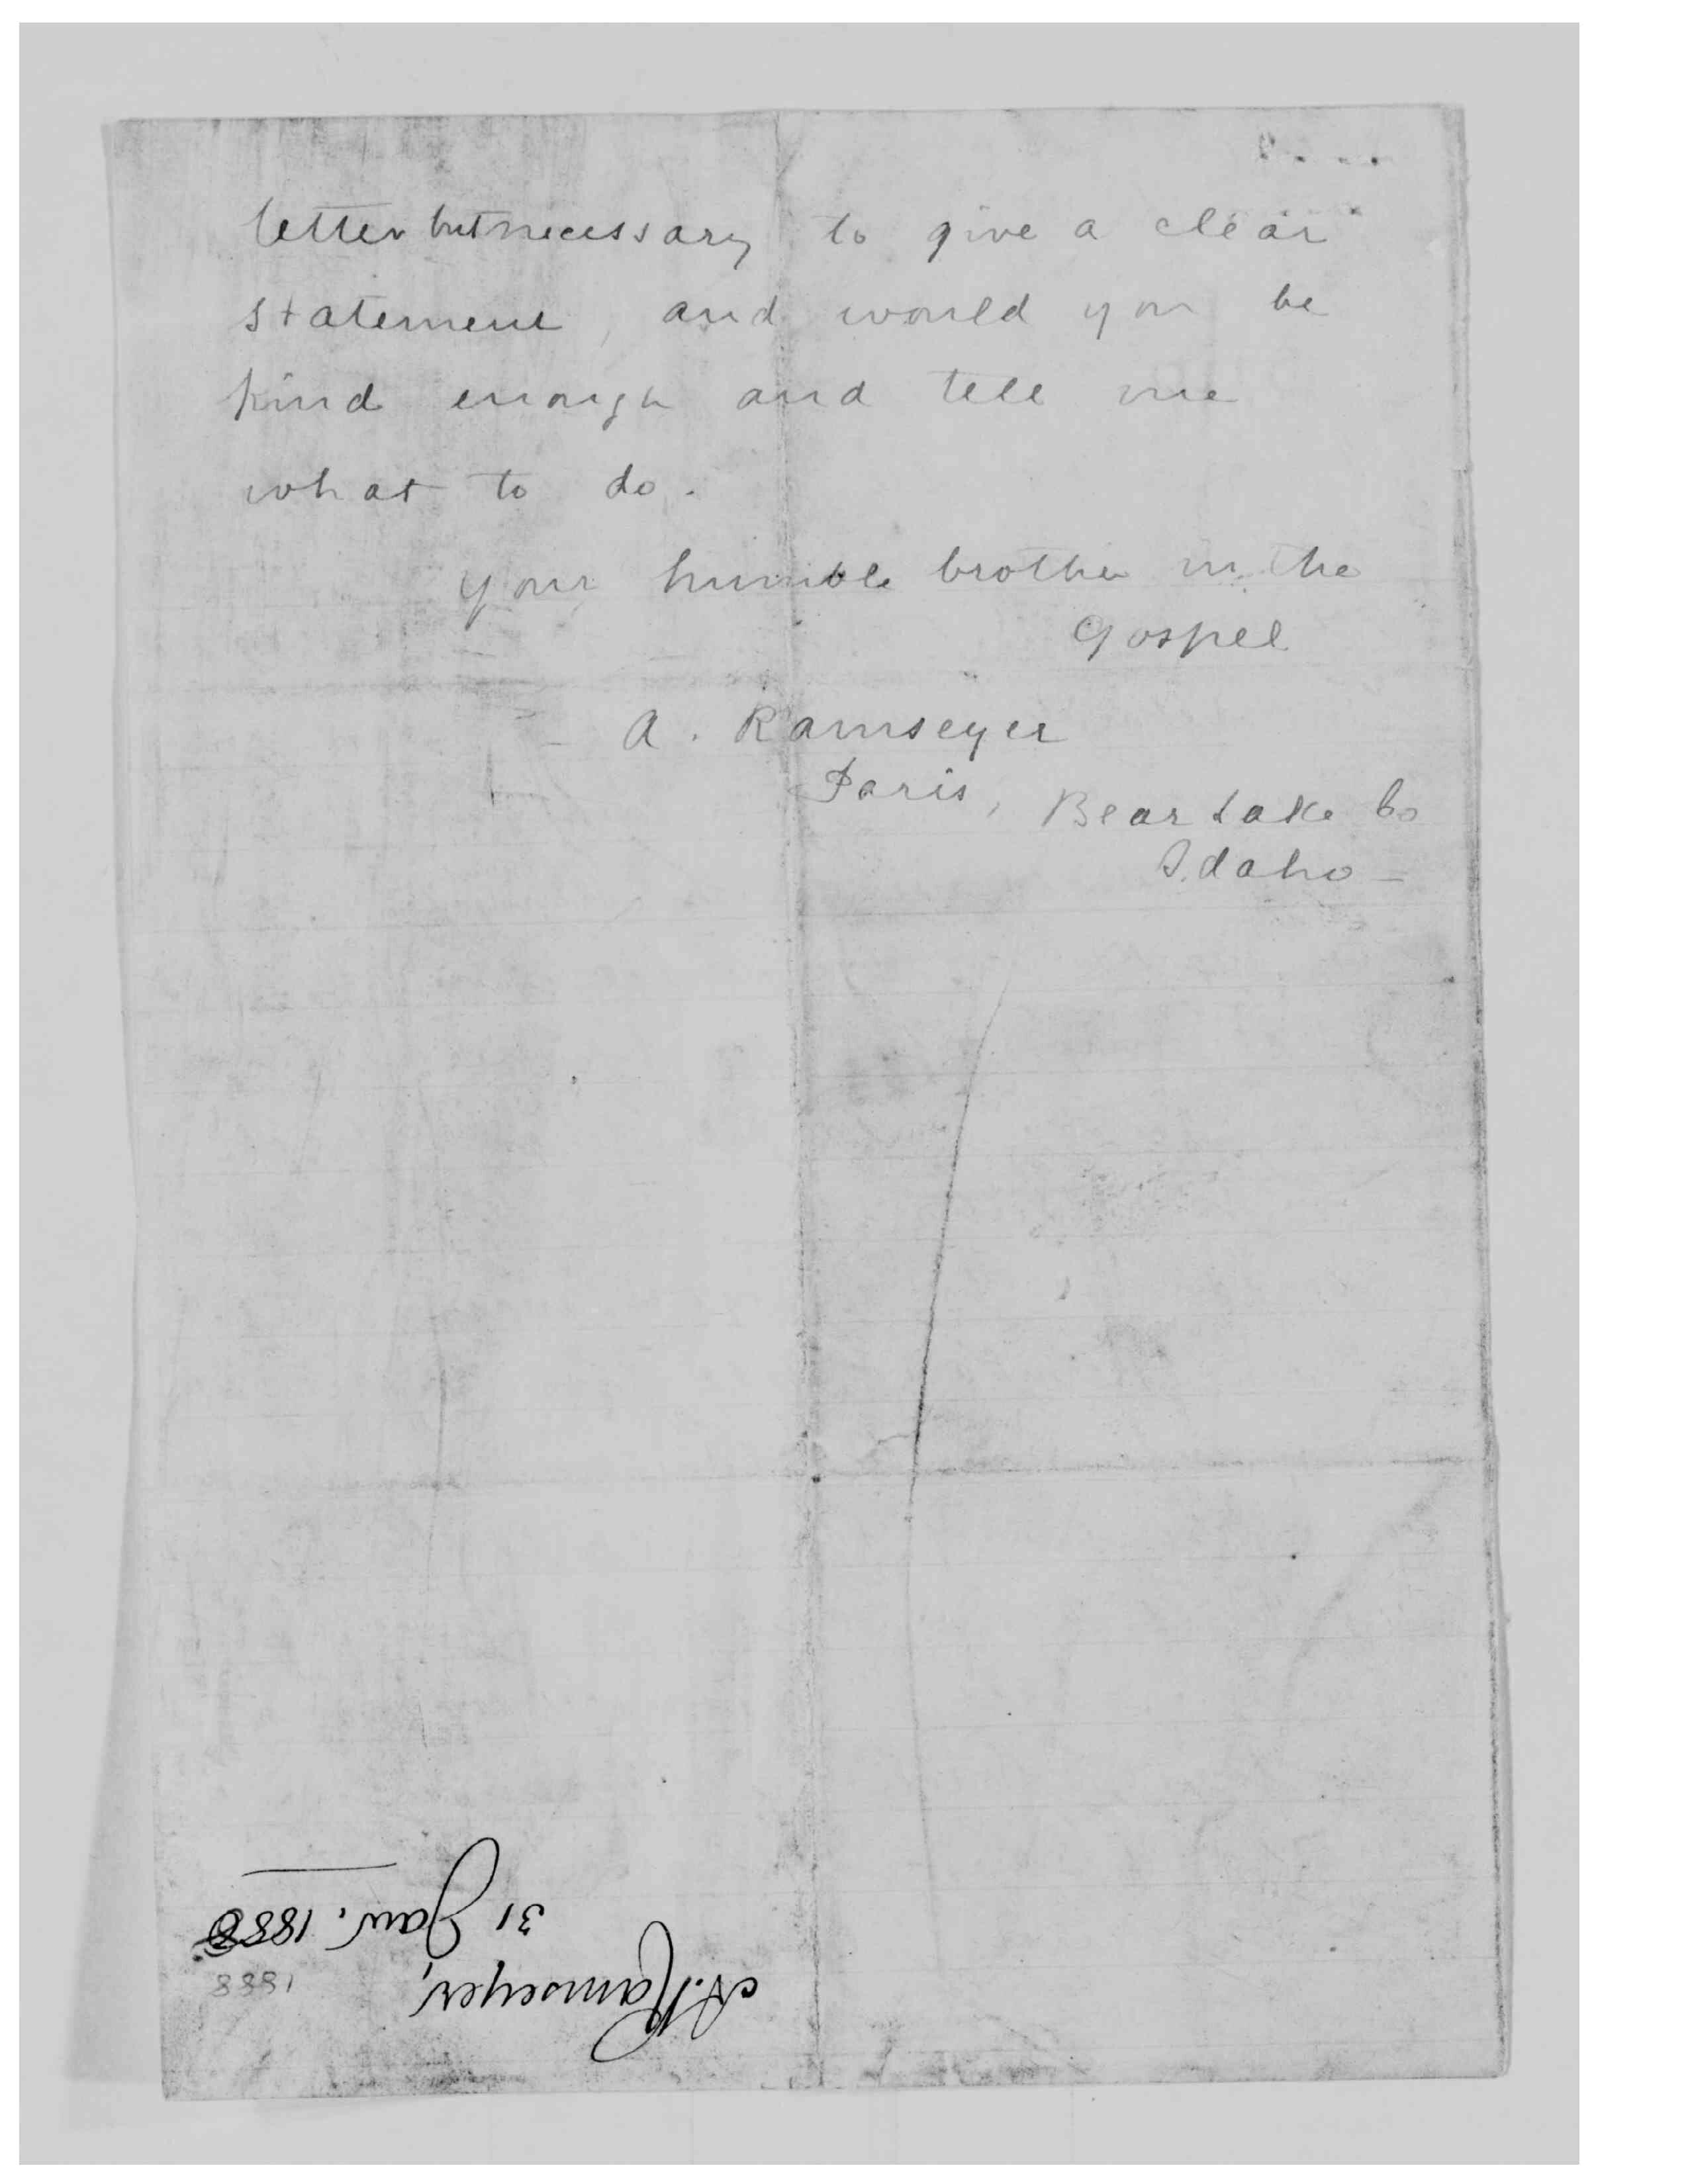 letter but necessary to give a clear
statement, and would you be
kind enough and tell me
what to do.
your humble brother in the
Gospel
A. Ramseyer
Paris, Bear Lake Co
Idaho -
A. Ramseyer,
31 Jan. 1888
1888